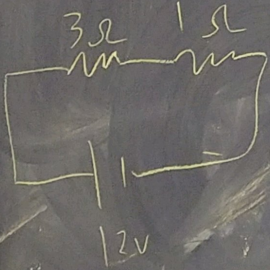 3Ω 1Ω
12V